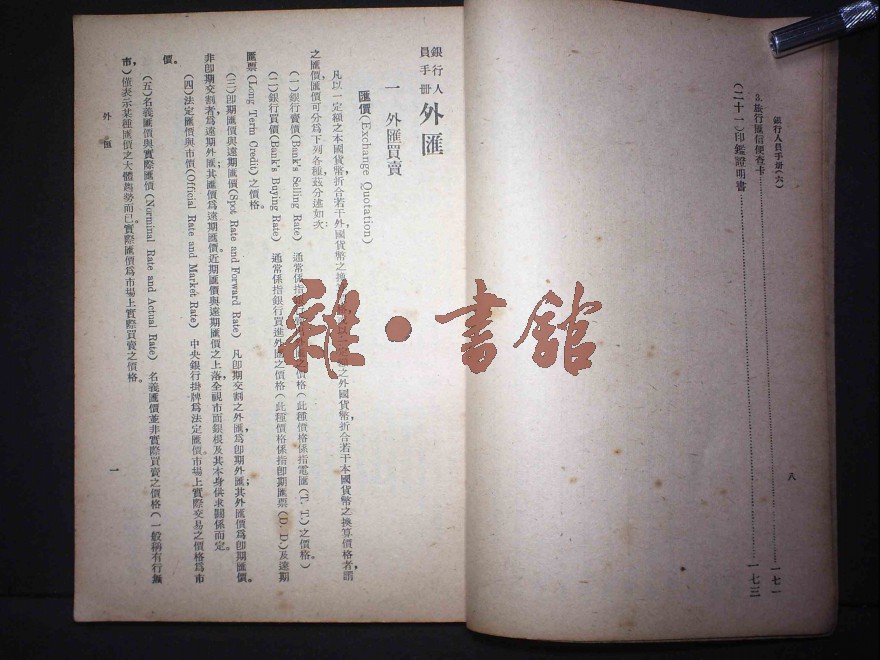 銀行人員手册(六)
3. 旅行匯信便查卡……一七一
(二十一)印鑑證明書……一七三
八
銀行人員手册 外匯
一 外匯買賣
匯價(Exchange Quotation)
凡以一定額之本國貨幣,折合若干外國貨幣之換 以一定額之外國貨幣,折合若干本國貨幣之換算價格者,謂
之匯價,匯價可分爲下列各種,茲分述如次:
(一)銀行賣價(Bank's Selling Rate) 通常係指銀行 之價格(此種價格係指電匯(T. T.)之價格。)
(二)銀行買價(Bank's Buying Rate) 通常係指銀行買進外匯之價格(此種價格係指卽期匯票(D. D.)及遠期
匯票(Long Term Credit)之價格。
(三)卽期匯價與遠期匯價(Spot Rate and Forward Rate) 凡卽期交割之外匯,爲卽期外匯,其外匯價爲卽期匯價。
非卽期交割者,爲遠期外匯;其匯價爲遠期匯價。近期匯價與遠期匯價之上落,全視市面銀根及其本身供求關係而定。
(四)法定匯價與市價(Official Rate and Market Rate) 中央銀行掛牌爲法定匯價。市場上實際交易之價格爲市
價。
(五)名義匯價與實際匯價(Norminal Rate and Actual Rate) 名義匯價並非實際買賣之價格(一般稱有行無
市,)僅表示某種匯價之大體趨勢而已。實際匯價爲市場上實際買賣之價格。
外匯
一
雜·書舘